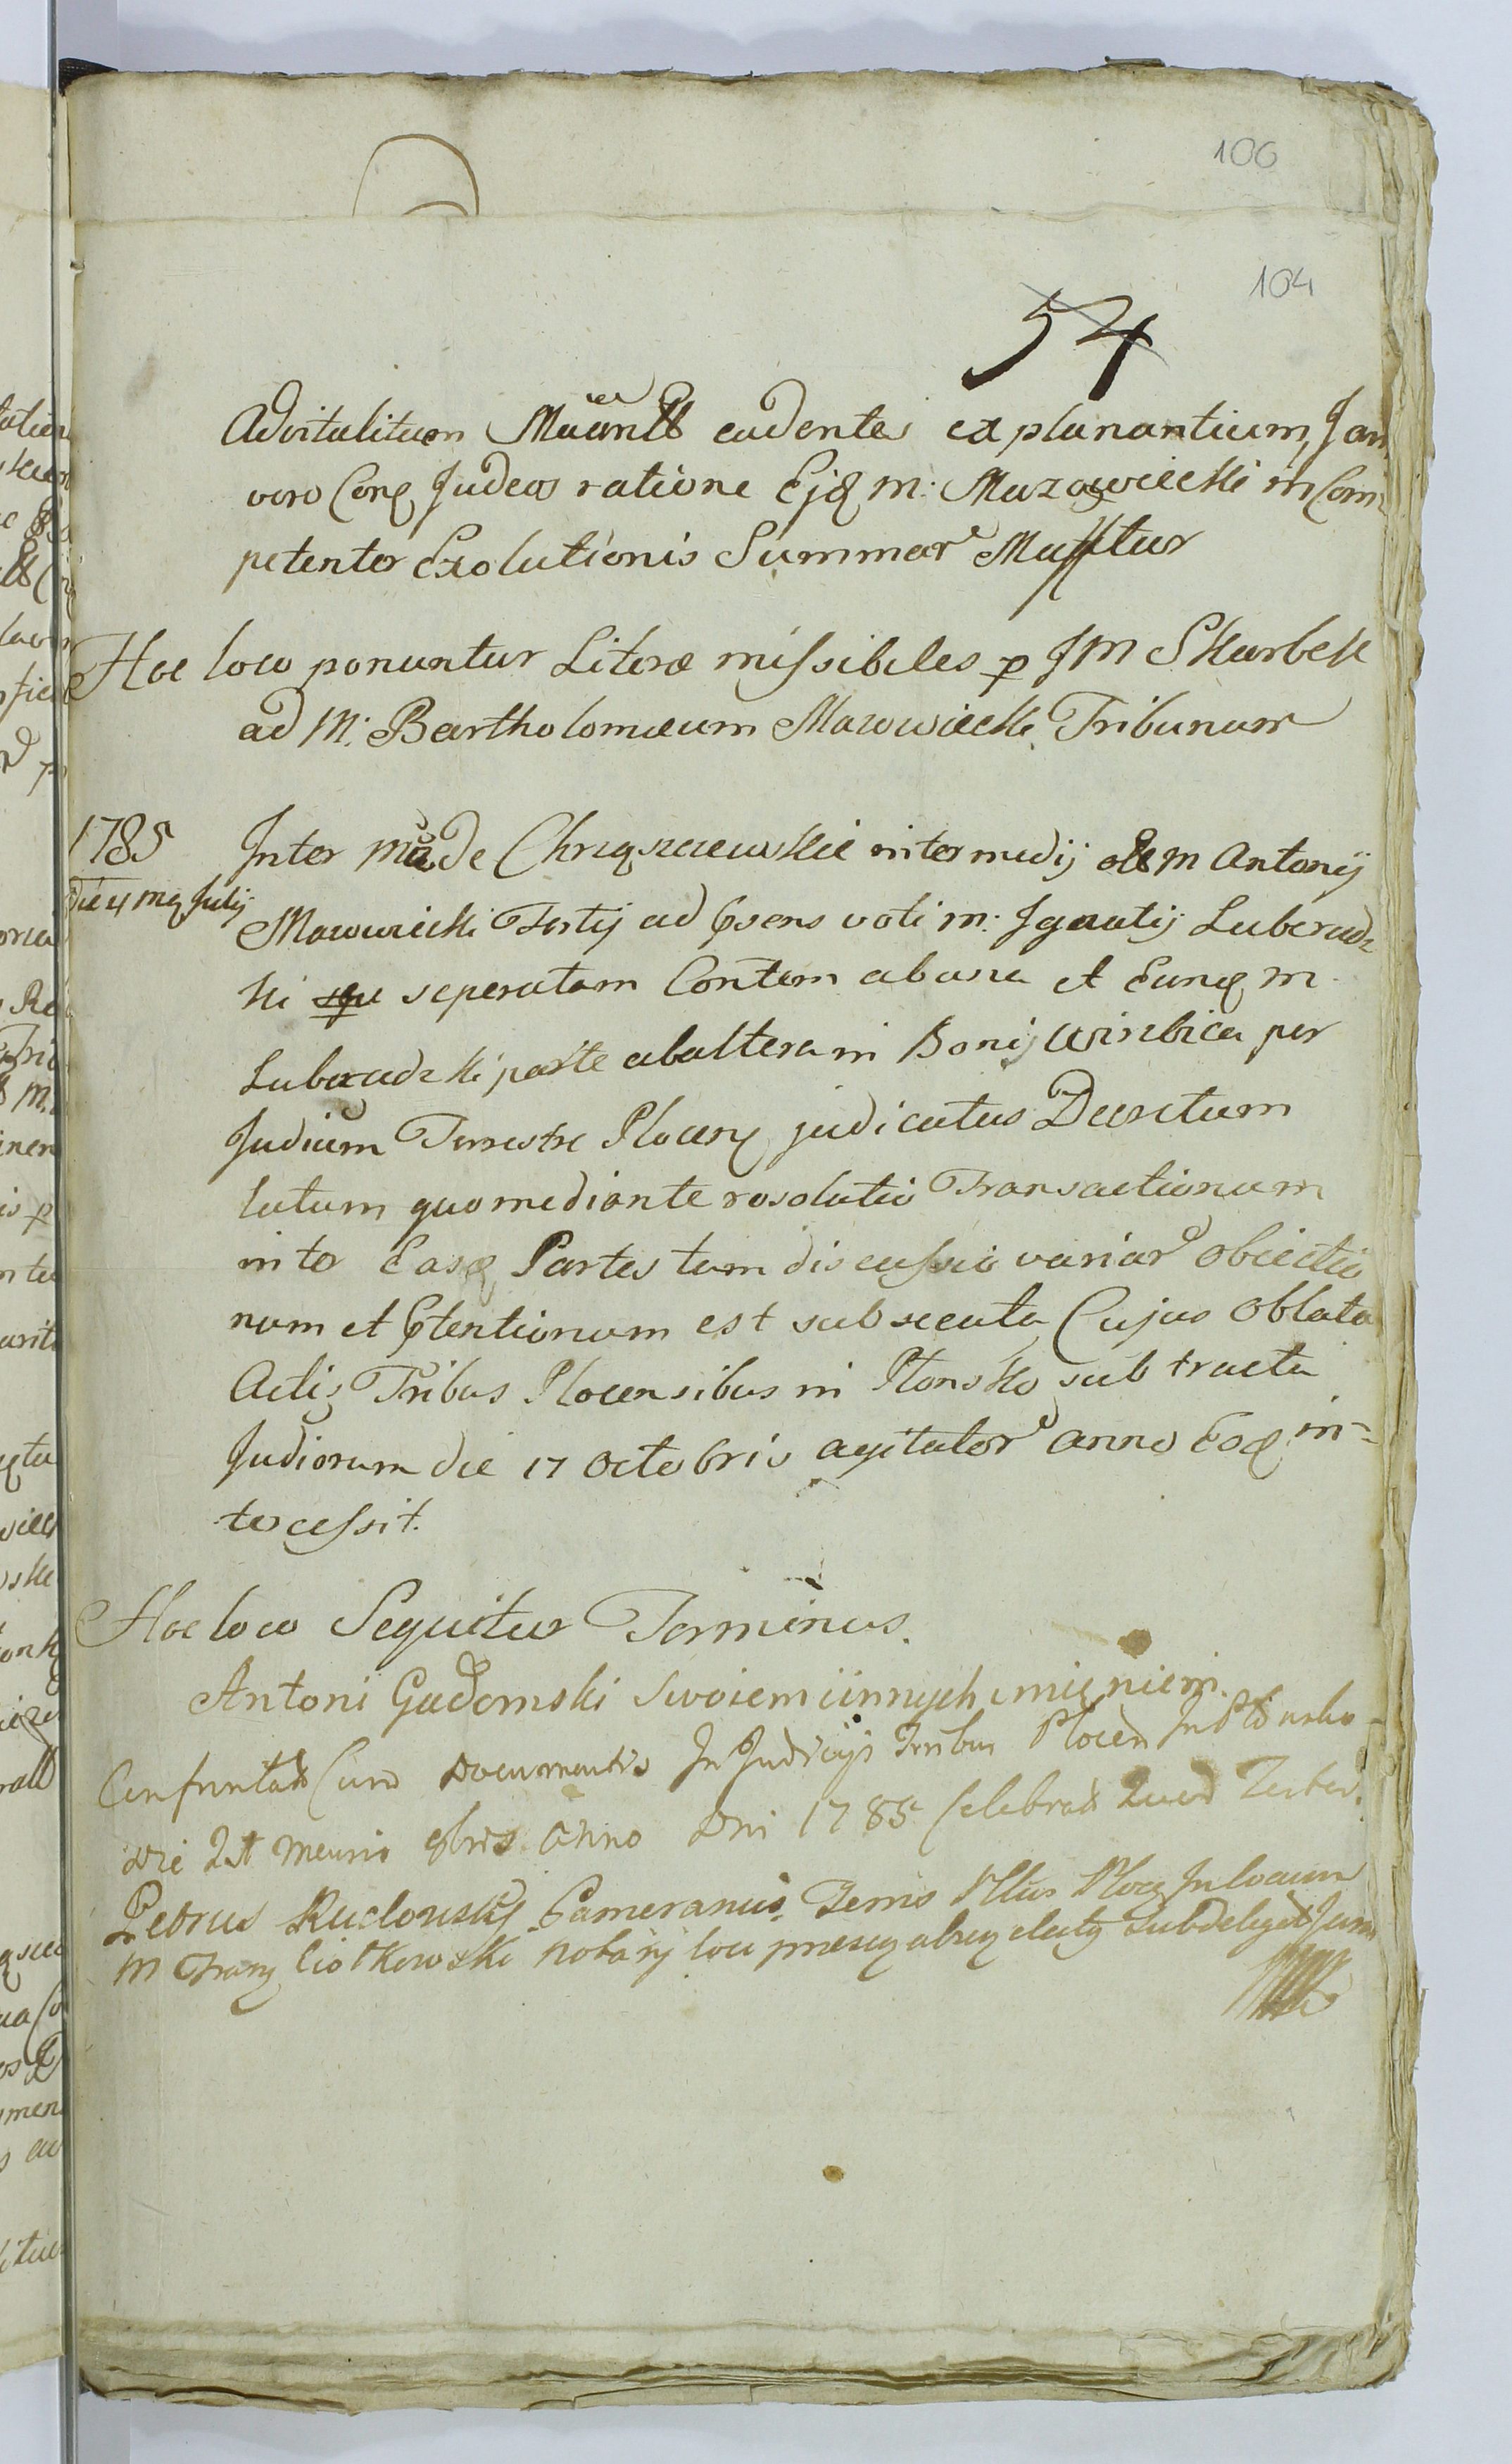 106
104
54
Advitalitiem cadentes explanantium, Jam
vero Conq Judeos ratione Ejq M: Mazowiecki in Com-
petenter Exolutionis Summar
Hoc loco ponuntur Literæ missibiles p JM Skarbek
ad M: Bartholomæum Mazowiecki Tribunum
1785
die 4 mq Julij
Inter de Chrząszczewskie intermedij M Antonij
Mazowiecki Tertij ad voti M: Ignatij Luberadz
ki seperatam Contem abuna et Eunq M
Luberadzki parte ab altera in Bonis Wirzbica per
Judicium Terrestre Plocenq judicatus Decretum
latum quo mediante resolutio Transactionum
inter Easq Partes tum discussio variar obiectio
num et Ptentionum est subsecuta Cujus Oblata
Actis Tribus Plocensibus in Plonsko sub tractu
Judiorum die 17 Octobris agitator anno Eoq in-
tercessit.
Hoc loco Sequitur Terminus.
Antoni Gadomski swoiem i innych imięniem.
Confrontat Cum Documentis In Judicijs Tribus Plocen In Plonsko
die Mensis 8bris Anno Dni 1785 Celebrat Quod Testor.
Petrus Rudowski Cameranus Terris Plocq In locum
M Franq Ciołkowski Notarij loci Subdelegat Jur